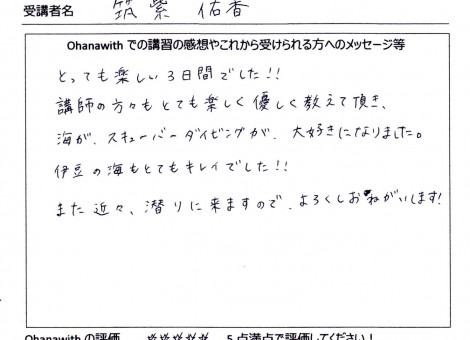 受講者名 筑紫 佑香
Ohanawith での講習の感想やこれから受けられる方へのメッセージ等
とっても楽しい3日間でした!!
講師の方々もとても楽しく優しく教えて頂き、
海が、スキューバーダイビングが、大好きになりました。
伊豆の海もとてもキレイでした!!
また近々、潜りに来ますので、よろくしおねがいします!
Ohanawith の評価 ***** 5 点満点で評価してください!